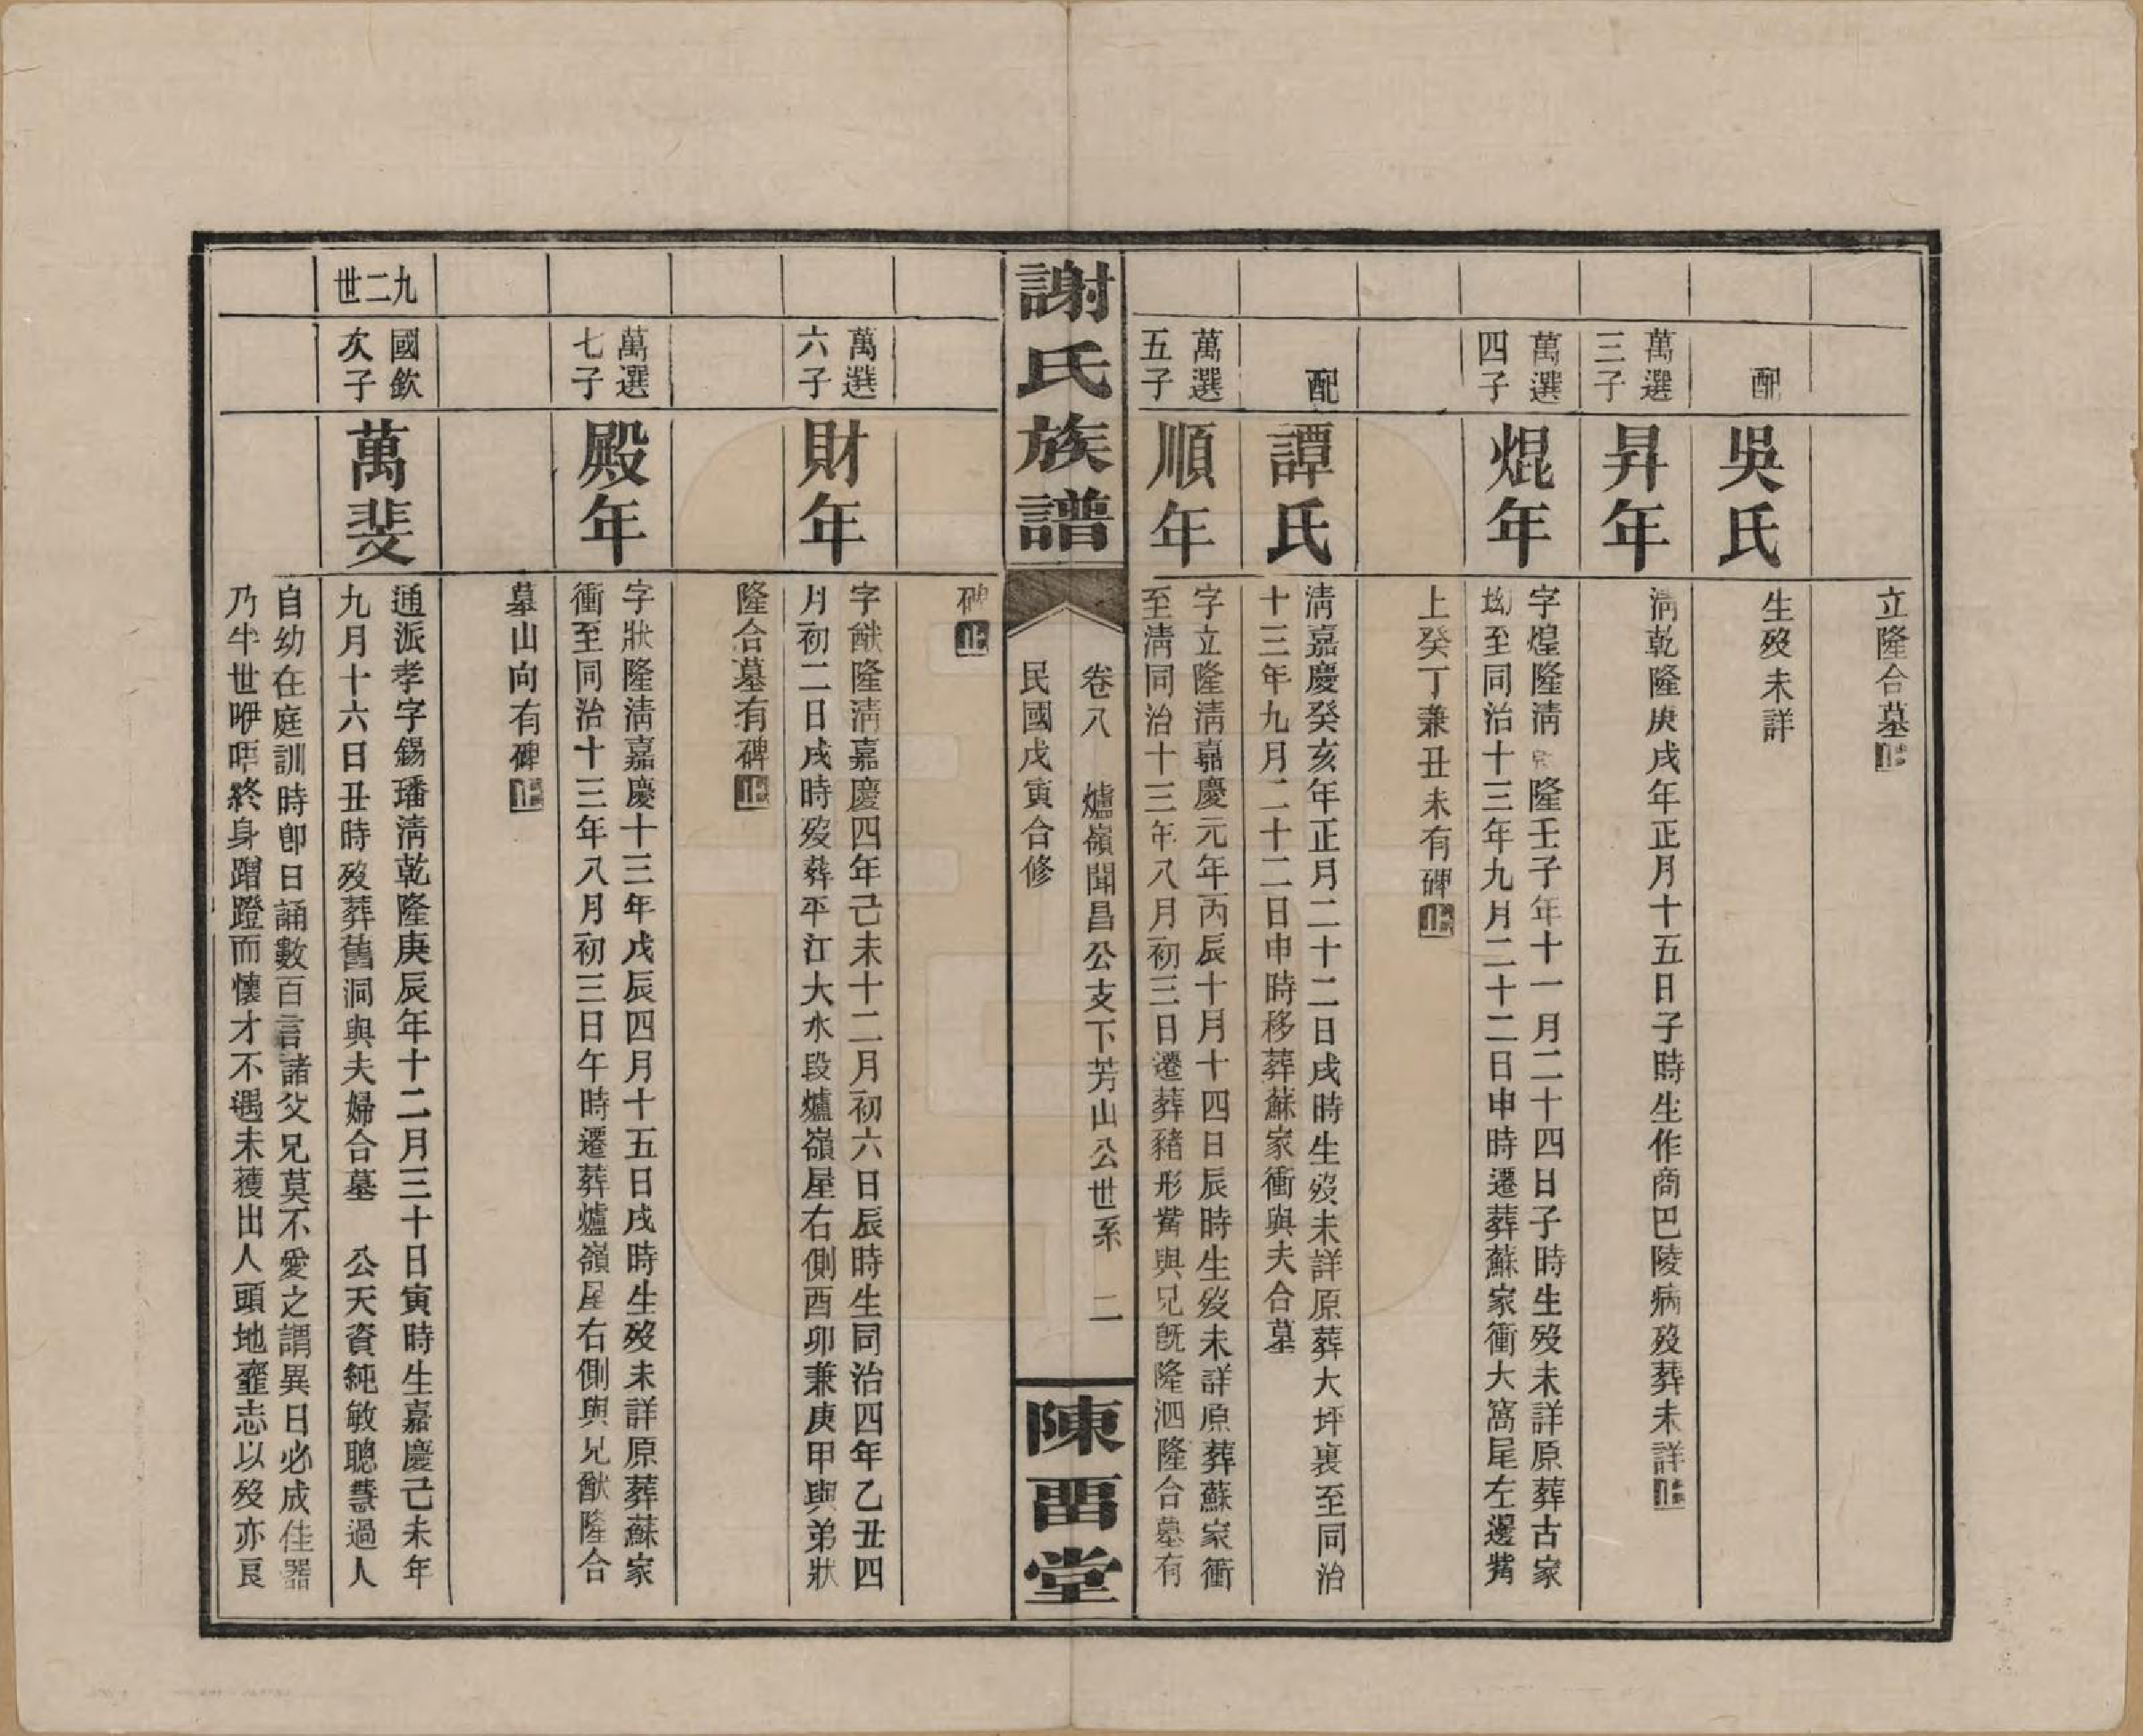 立隆合墓止
配
吳氏
生歿未詳
萬選
三子
昇年
清乾隆庚戌年正月十五日子時生作商巴陵病歿葬未詳止
萬選
四子
焜年
字煌隆清乾隆壬子年十一月二十四日子時生歿未詳原葬古家
坳至同治十三年九月二十二日申時遷葬蘇家衝大窩尾左邊嘴
上癸丁兼丑未有碑止
配
譚氏
清嘉慶癸亥年正月二十二日戌時生歿未詳原葬大坪裏至同治
十三年九月二十二日申時移葬蘇家衝與夫合墓
萬選
五子
順年
字立隆清嘉慶元年丙辰十月十四日辰時生歿未詳原葬蘇家衝
至清同治十三年八月初三日遷葬豬形嘴與兄旣隆泗隆合墓有
謝氏族譜
卷八 爐嶺聞昌公支下芳山公世系 二
民國戊寅合修
陳畱堂
碑止
萬選
六子
財年
字猷隆清嘉慶四年己未十二月初六日辰時生同治四年乙丑四
月初二日戌時歿葬平江大水段爐嶺屋右側酉卯兼庚甲與弟狀
隆合墓有碑止
萬選
七子
殿年
字狀隆清嘉慶十三年戊辰四月十五日戌時生歿未詳原葬蘇家
衝至同治十三年八月初三日午時遷葬爐嶺屋右側與兄猷隆合
墓山向有碑止
九二世
國欽
次子
萬斐
通派孝字錫璠清乾隆庚辰年十二月三十日寅時生嘉慶己未年
九月十六日丑時歿葬舊洞與夫婦合墓 公天資純敏聰慧過人
自幼在庭訓時卽日誦數百言諸父兄莫不愛之謂異日必成佳器
乃半世咿唔終身蹭蹬而懷才不遇未獲出人頭地齎志以歿亦良